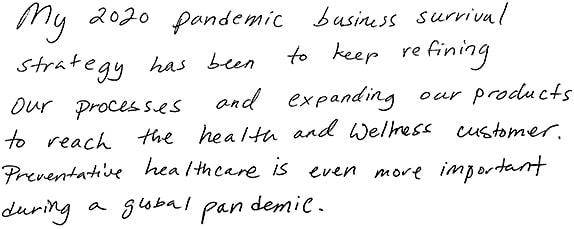 My 2020 pandemic business survival
strategy has been to keep refining
our processes and expanding our products
to reach the health and Wellness customer.
Preventative healthcare is even more important
during a global pandemic.